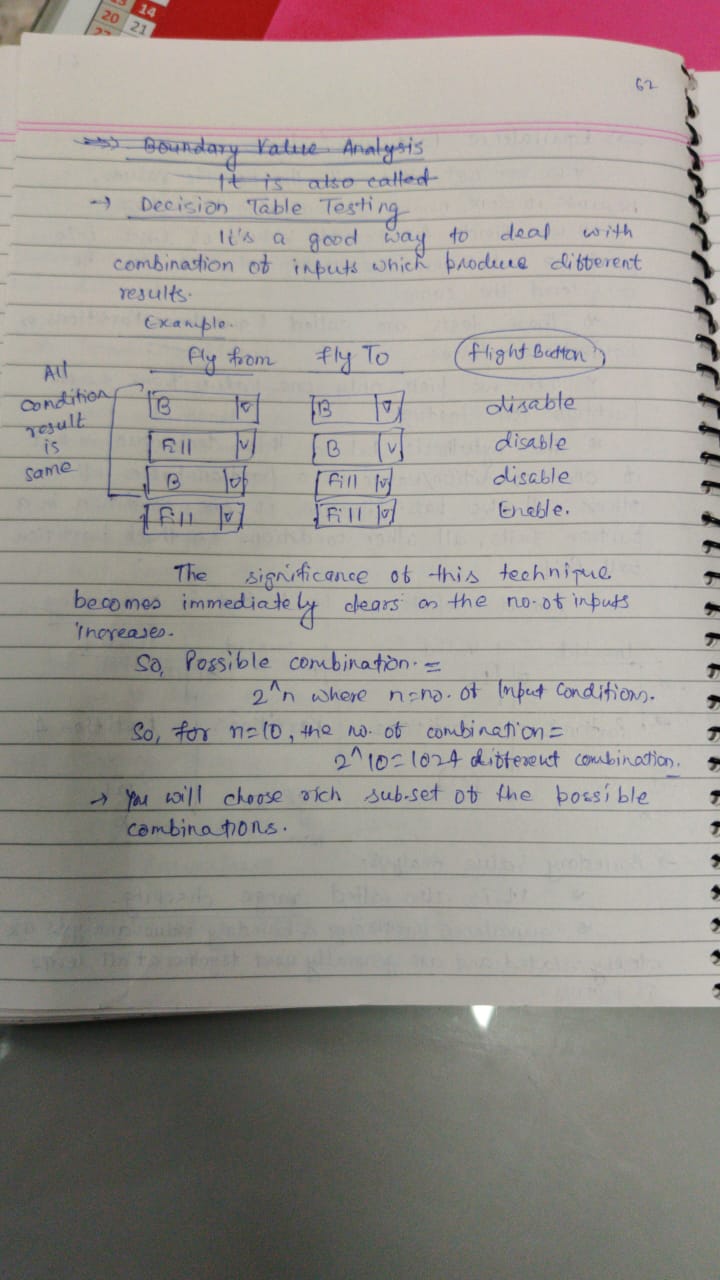 13 14
20 21
27
62
⇒> Boundary Value Analysis
It is also called
→ Decision Table Testing
It's a good way to deal with
combination of inputs which produces different
results.
Example.
Fly from Fly To flight Button
All
condition
result
is
same
B B disable
Fill B disable
B Fill disable
Fill Fill Enable.
The significance of this technique
becomes immediately clears as the no. of inputs
increases.
So, Possible combination. =
2^n where n=no. of Input Conditions.
So, for n=10, the no. of combination=
2^10=1024 different combination.
→ You will choose rich sub-set of the possible
combinations.